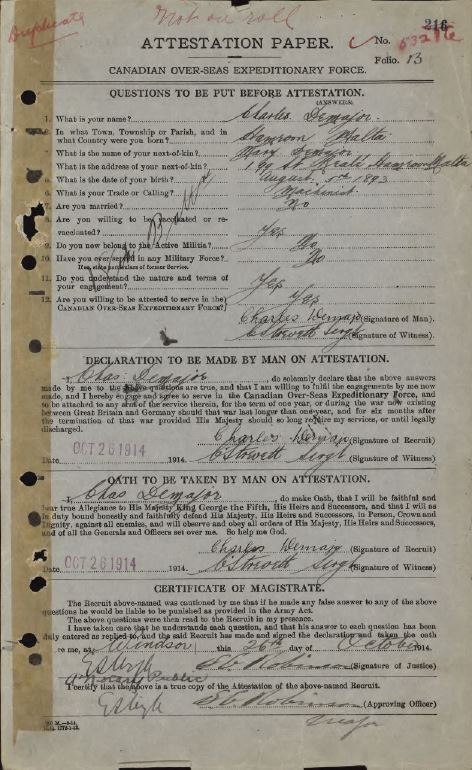 Duplicate
Not on roll
216
No. 53216
Folio. 13
ATTESTATION PAPER.
CANADIAN OVER-SEAS EXPEDITIONARY FORCE.
QUESTIONS TO BE PUT BEFORE ATTESTATION.
(ANSWERS)
1. What is your name? Charles Demajor.
2. In what Town, Township or Parish, and in
what Country were you born? Hamrom Malta
3. What is the name of your next-of-kin? Mary Demajor
4. What is the address of your next-of-kin? Hamrom Malta
5. What is the date of your birth? August 5th 1893
6. What is your Trade or Calling? Machinist
7. Are you married? No
8. Are you willing to be vaccinated or re-
vaccinated? Yes
9. Do you now belong to the Active Militia? No
10. Have you ever served in any Military Force? No
If so, state particulars of former Service.
11. Do you understand the nature and terms of
your engagement? Yes
12. Are you willing to be attested to serve in the
CANADIAN OVER-SEAS EXPEDITIONARY FORCE? Yes
Charles Demajor (Signature of Man).
(Signature of Witness).
DECLARATION TO BE MADE BY MAN ON ATTESTATION.
I, Chas. Demajor, do solemnly declare that the above answers
made by me to the above questions are true, and that I am willing to fulfil the engagements by me now
made, and I hereby engage and agree to serve in the Canadian Over-Seas Expeditionary Force, and
to be attached to any arm of the service therein, for the term of one year, or during the war now existing
between Great Britain and Germany should that war last longer than one year, and for six months after
the termination of that war provided His Majesty should so long require my services, or until legally
discharged.
Charles Demajor (Signature of Recruit)
Date OCT 26 1914 1914. (Signature of Witness)
OATH TO BE TAKEN BY MAN ON ATTESTATION.
I, Chas Demajor, do make Oath, that I will be faithful and
bear true Allegiance to His Majesty King George the Fifth, His Heirs and Successors, and that I will as
in duty bound honestly and faithfully defend His Majesty, His Heirs and Successors, in Person, Crown and
Dignity, against all enemies, and will observe and obey all orders of His Majesty, His Heirs and Successors,
and of all the Generals and Officers set over me. So help me God.
Charles Demajor (Signature of Recruit)
Date OCT 26 1914 1914. (Signature of Witness)
CERTIFICATE OF MAGISTRATE.
The Recruit above-named was cautioned by me that if he made any false answer to any of the above
questions he would be liable to be punished as provided in the Army Act.
The above questions were then read to the Recruit in my presence.
I have taken care that he understands each question, and that his answer to each question has been
duly entered as replied to, and the said Recruit has made and signed the declaration and taken the oath
re me, at Windsor this 26th day of October 1914.
(Signature of Justice)
A Notary Public
I certify that the above is a true copy of the Attestation of the above-named Recruit.
(Approving Officer)
Major